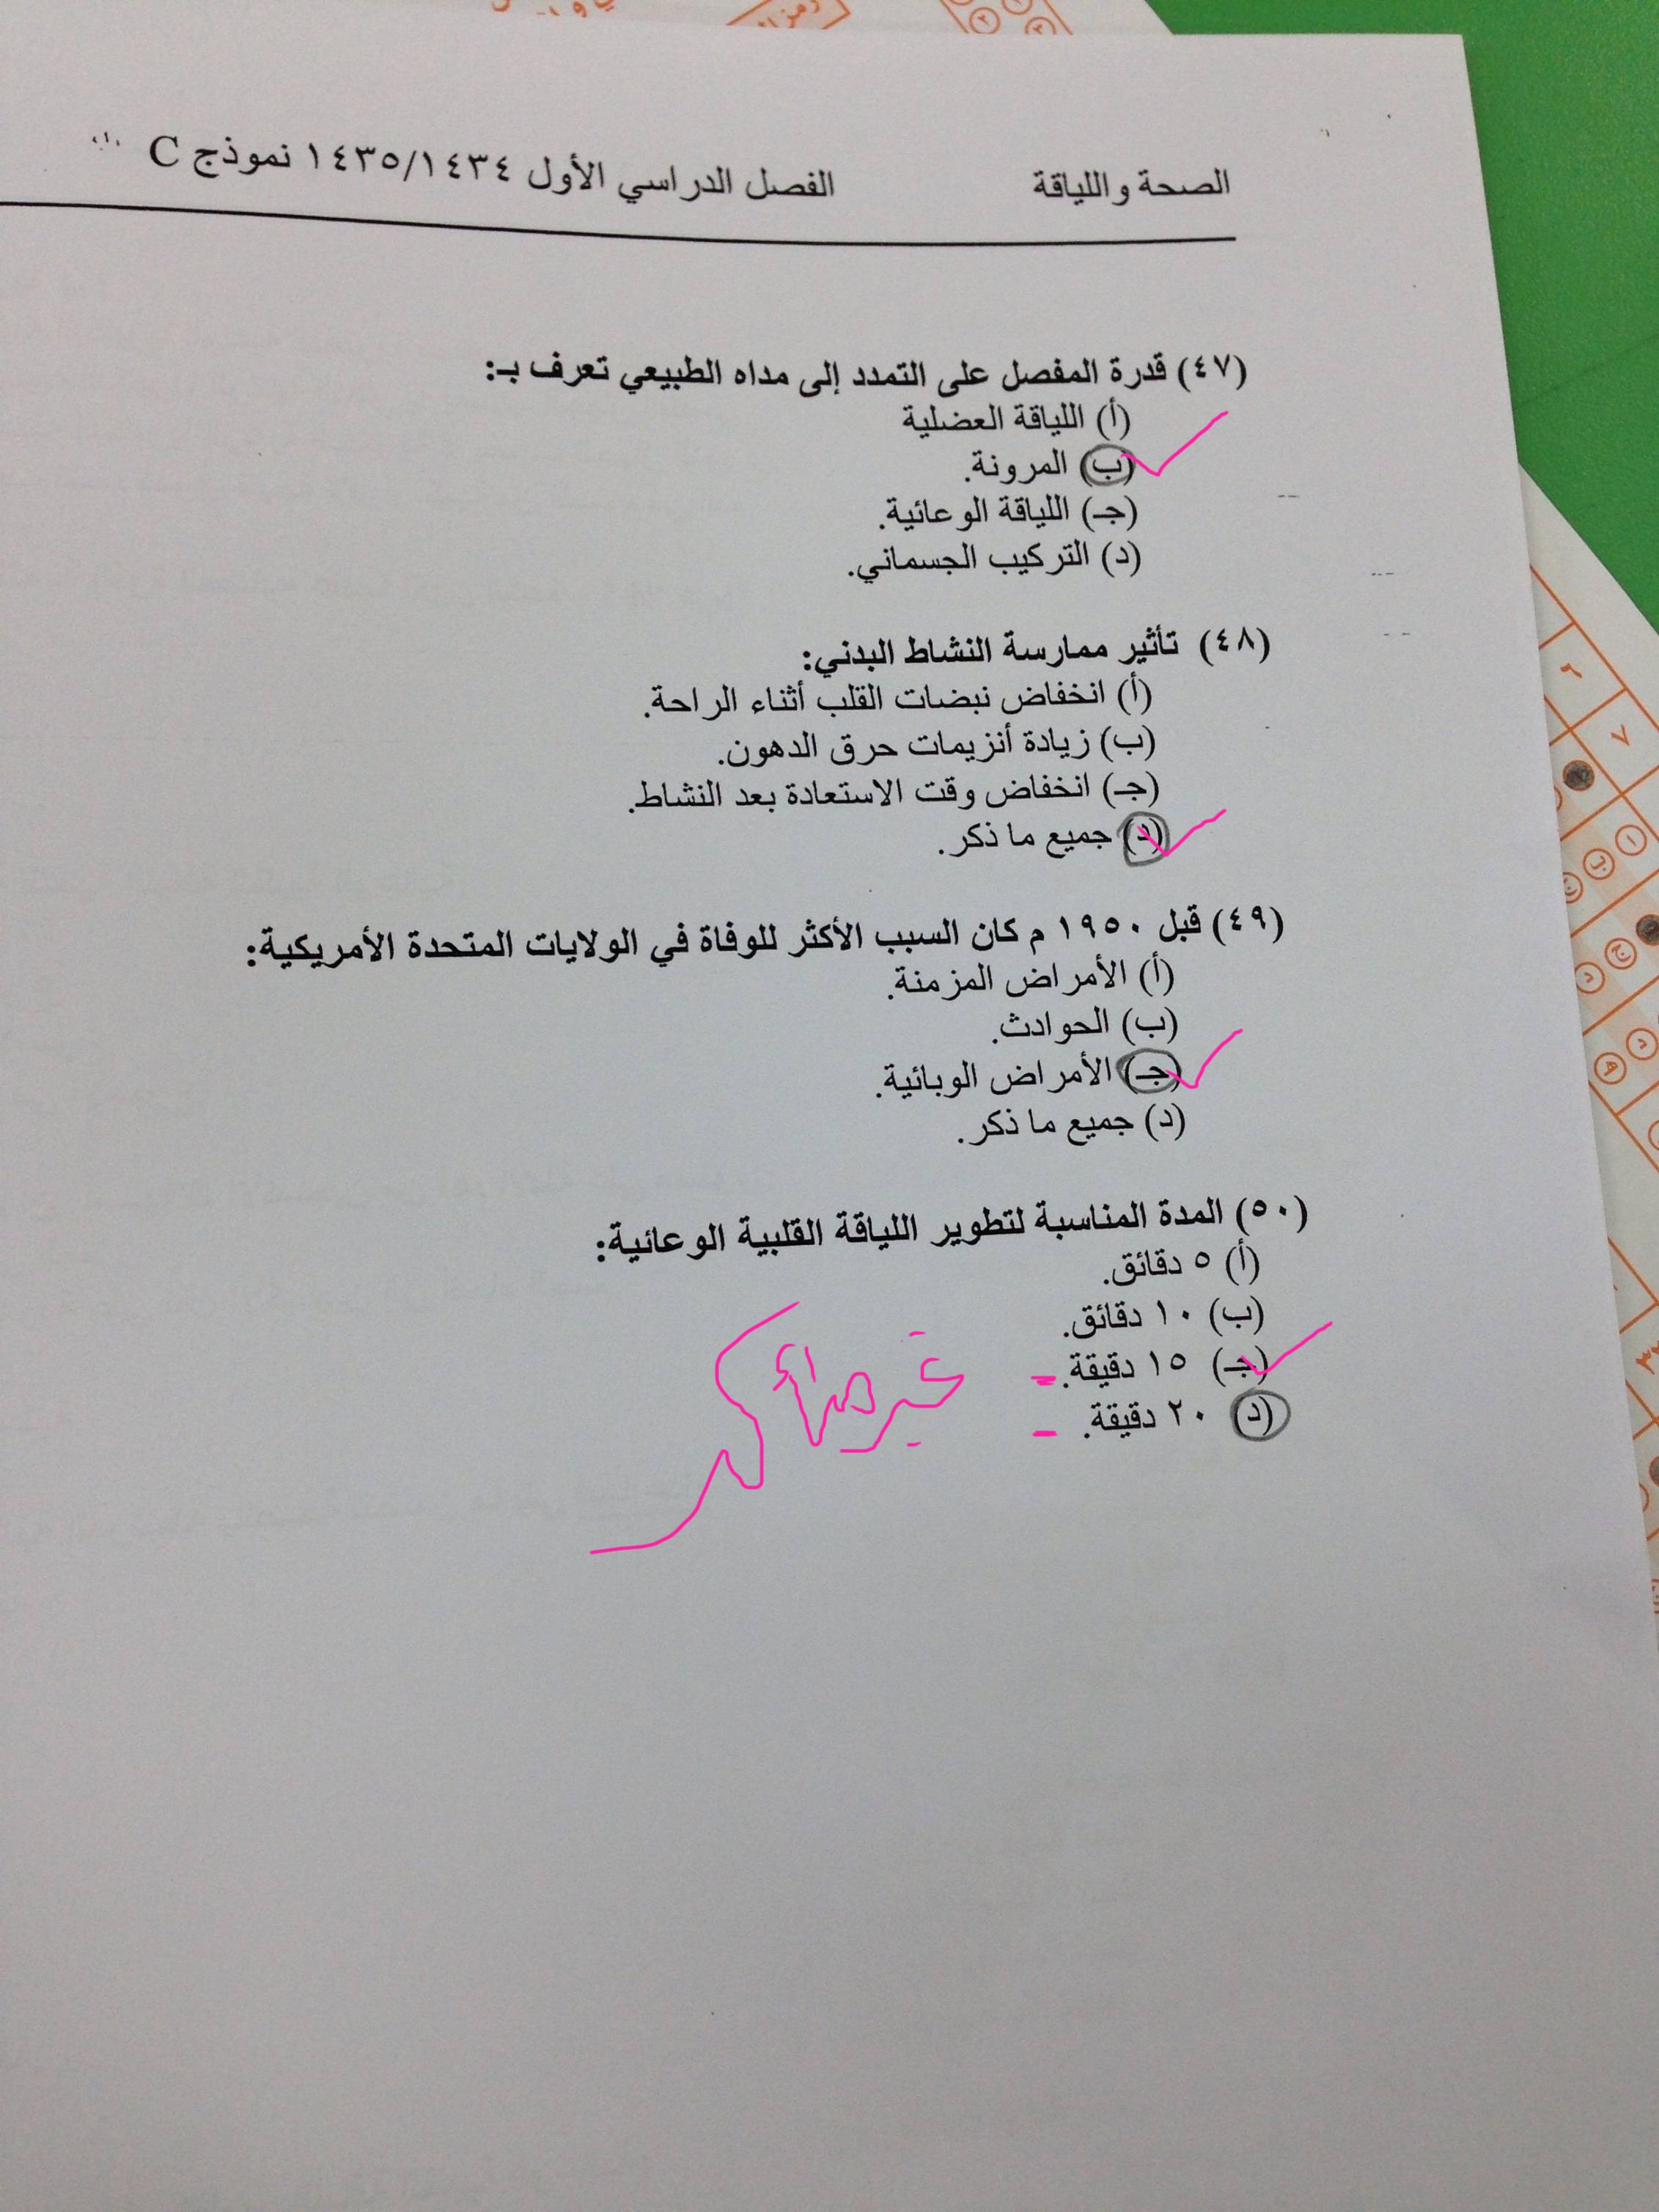 الصحة واللياقة الفصل الدراسي الأول ١٤٣٥/١٤٣٤ نموذج C
(٤٧) قدرة المفصل على التمدد إلى مداه الطبيعي تعرف بـ:
(أ) اللياقة العضلية
(ب) المرونة.
(جـ) اللياقة الوعائية.
(د) التركيب الجسماني.
(٤٨) تأثير ممارسة النشاط البدني:
(أ) انخفاض نبضات القلب أثناء الراحة.
(ب) زيادة أنزيمات حرق الدهون.
(جـ) انخفاض وقت الاستعادة بعد النشاط.
(د) جميع ما ذكر.
(٤٩) قبل ١٩٥٠ م كان السبب الأكثر للوفاة في الولايات المتحدة الأمريكية:
(أ) الأمراض المزمنة.
(ب) الحوادث.
(جـ) الأمراض الوبائية.
(د) جميع ما ذكر.
(٥٠) المدة المناسبة لتطوير اللياقة القلبية الوعائية:
(أ) ٥ دقائق.
(ب) ١٠ دقائق.
(جـ) ١٥ دقيقة.
(د) ٢٠ دقيقة.
غير متأكد